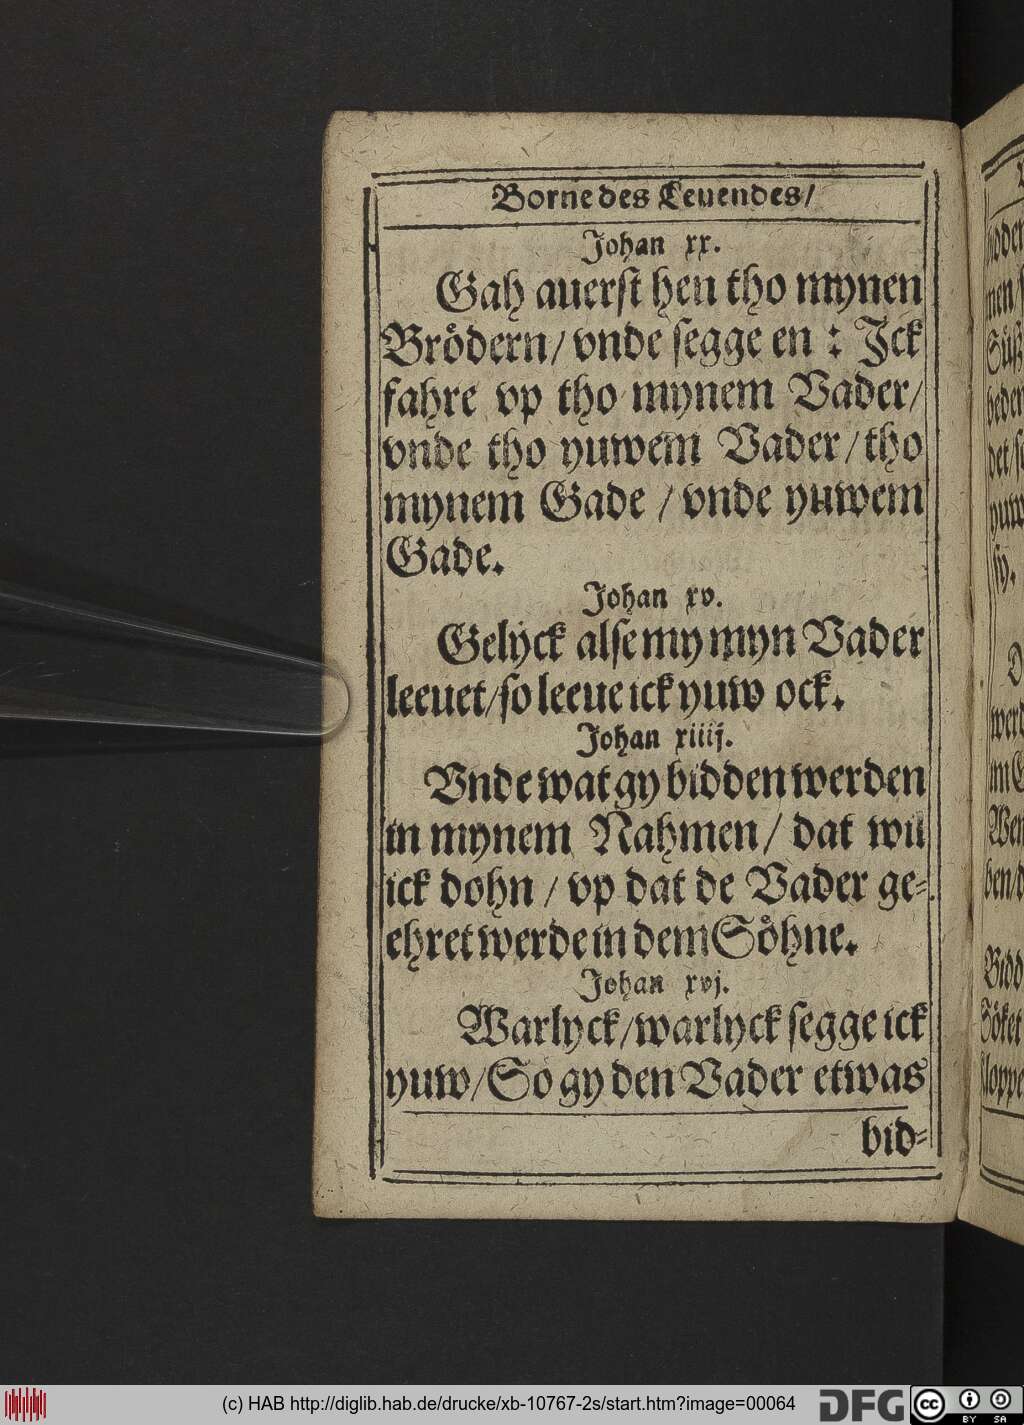 Borne des Leuendes/
Johan xx.
Gah auerst hen tho mynen
Brödern/ vnde segge en : Jck
fahre vp tho mynem Vader/
vnde tho yuwem Vader/ tho
mynem Gade / vnde yuwem
Gade.
Johan xv.
Gelyck alse my myn Vader
leeuet/ so leeue ick yuw ock.
Johan xiiij.
Vnde wat gy bidden werden
in mynem Nahmen/ dat wil
ick dohn / vp dat de Vader ge-
ehret werde in dem Söhne.
Johan xvj.
Warlyck/ warlyck segge ick
yuw/ So gy den Vader etwas
bid-
(c) HAB http://diglib.hab.de/drucke/xb-10767-2s/start.htm?image=00064
DFG
cc
BY SA